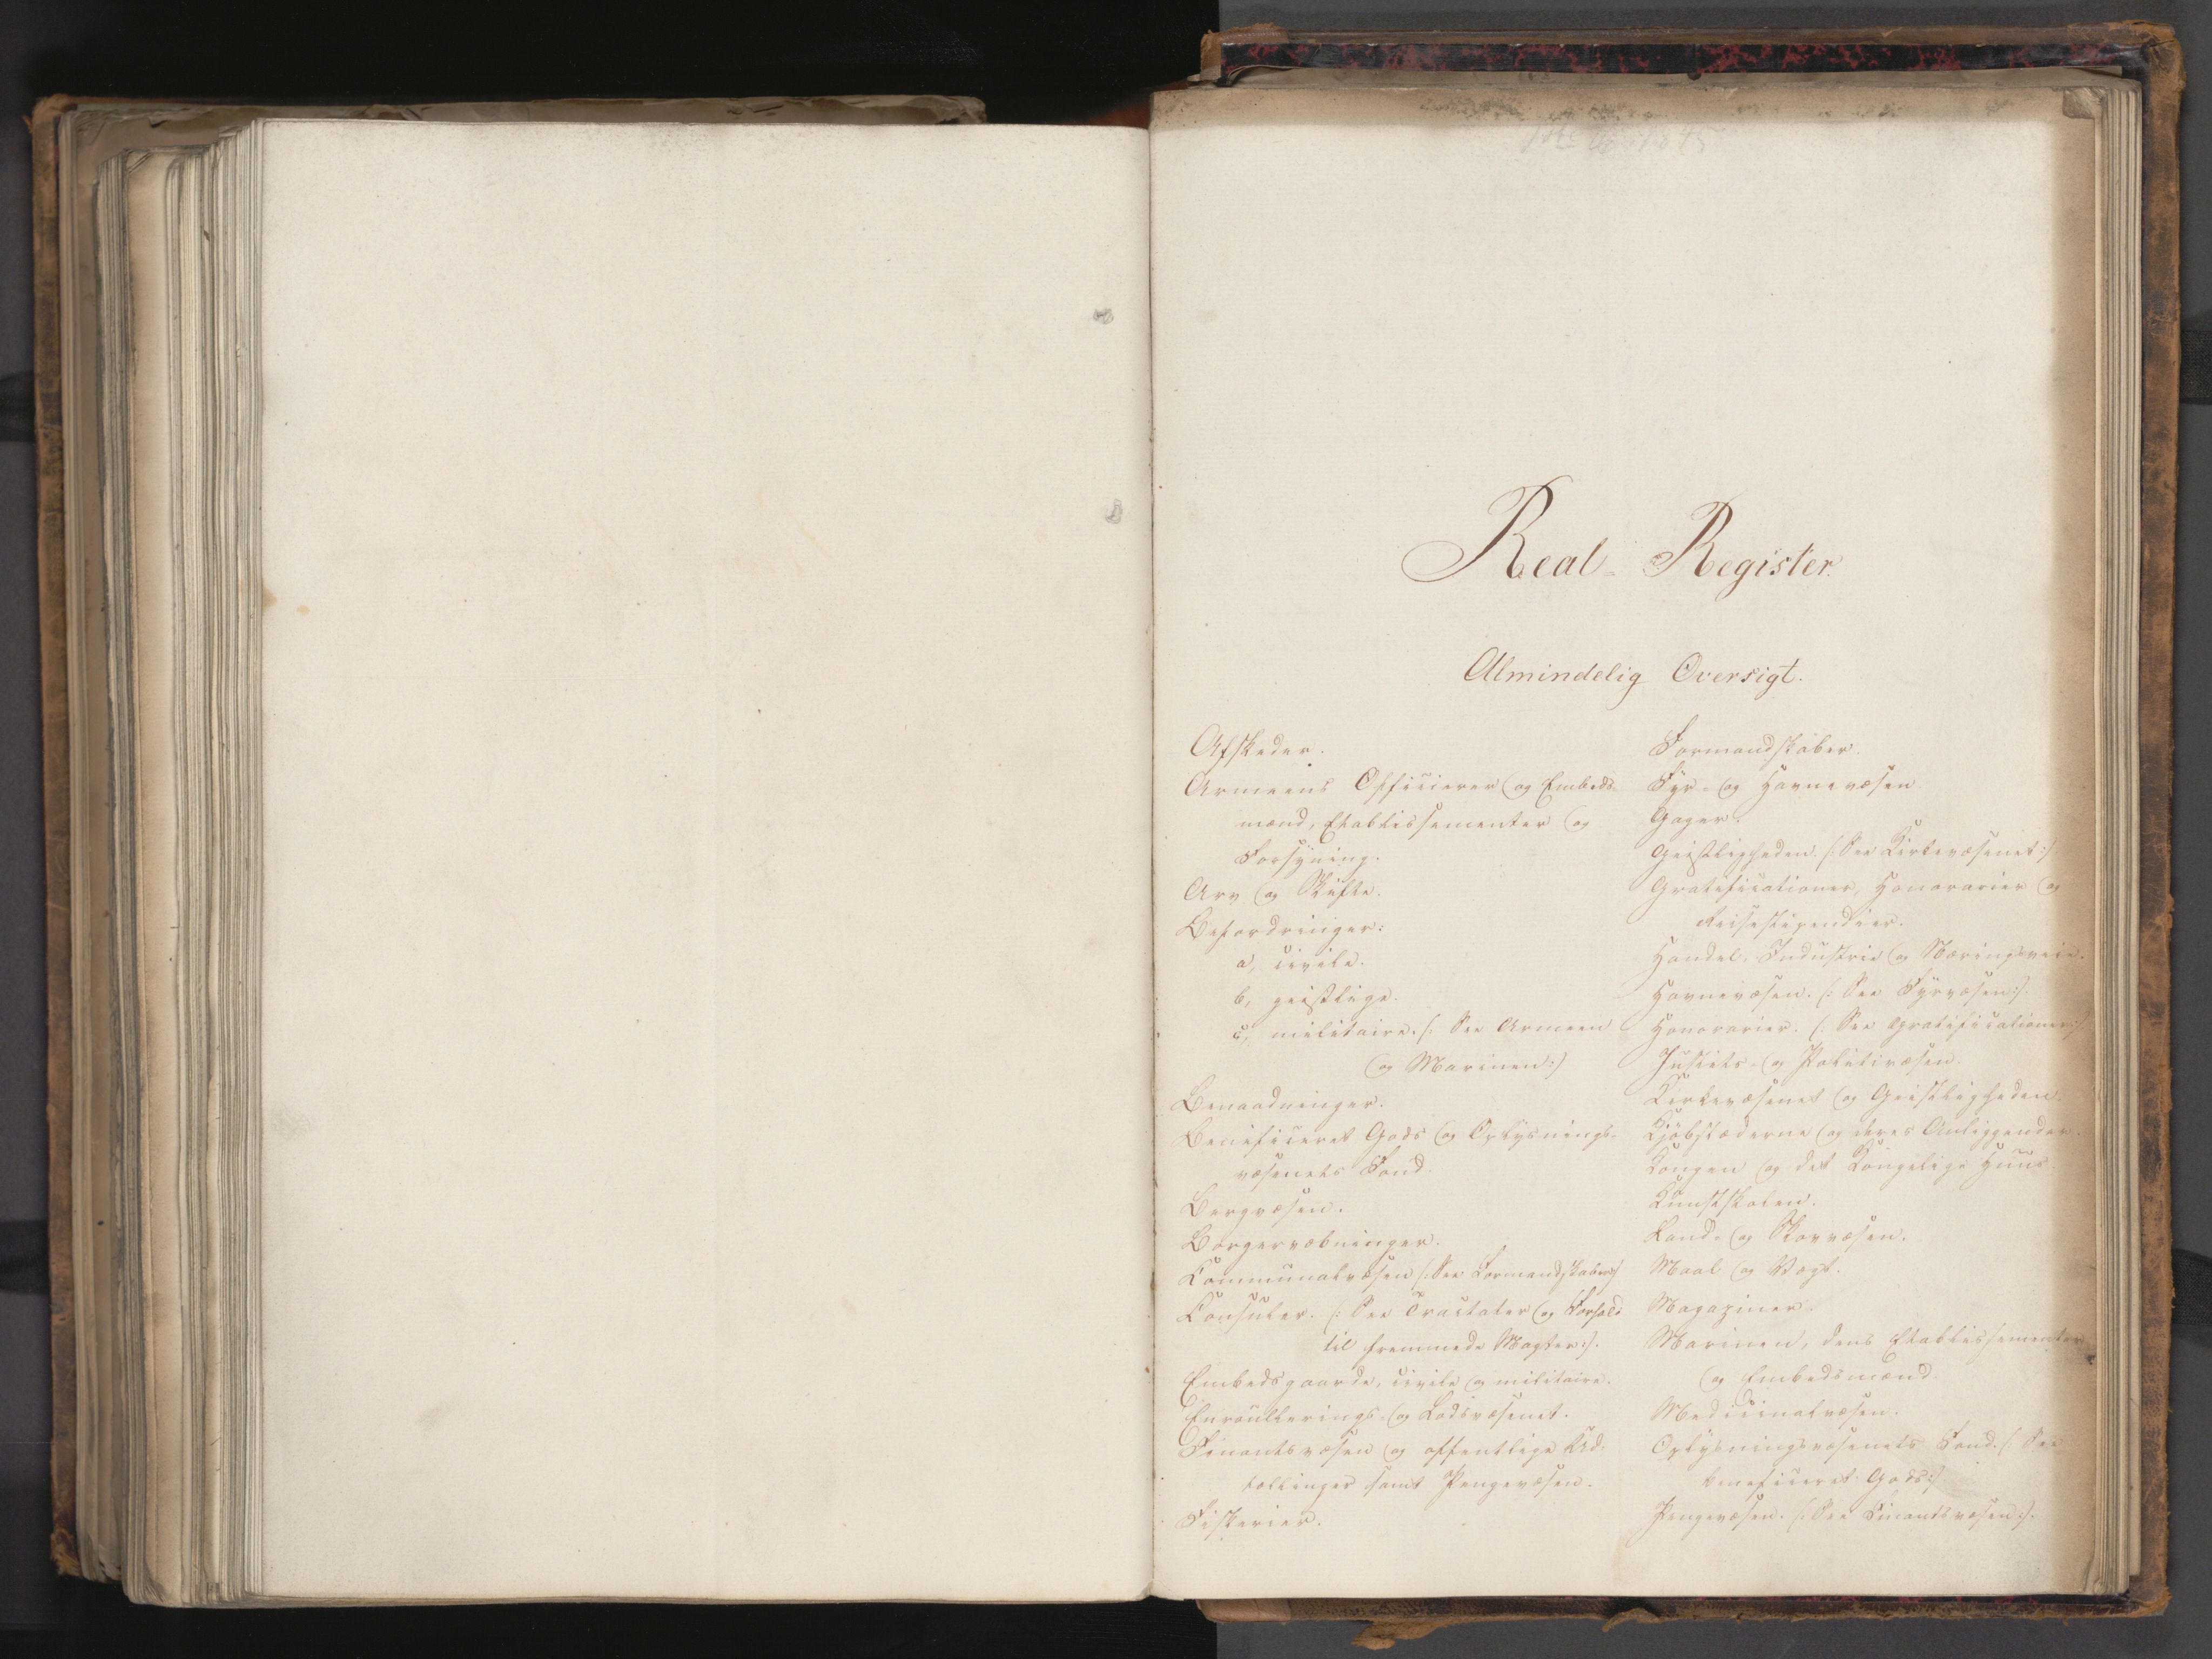 1845
Real-Register.
Almindelig Oversigt.
Afskeder.
Armeens Officierer og Embeds-
mænd, Etablissementer og
Forsyning.
Arv og Skifte.
Befordringer:
a, civile.
b, geistlige.
c, militaire. /: See Armeen
og Marinen :/
Benaadninger.
Benificeret Gods og Oplysnings-
væsenets Fond.
Bergvæsen.
Borgervæbninger.
Communalvæsen /: See Formandskaber :/
Consuler. /: See Tractater og Forhold
til fremmede Magter :/.
Embedsgaarde, civile og militaire.
Enroullerings- og Lodsvæsenet.
Finantsvæsen og offentlige Ud-
tællinger samt Pengevæsen.
Fiskerier.
Formandskaber.
Fyr- og Havnevæsen.
Gager.
Geistligheden. /: See Kirkevæsenet :/
Gratificationer, Honorarier og
Reisestipendier.
Handel, Industrie og Næringsveie.
Havnevæsen. /: See Fyrvæsen :/.
Honorarier. /: See Gratificationer :/
Justits- og Politivæsen.
Kirkevæsenet og Geistligheden.
Kjöbstæderne og deres Anliggender.
Kongen og det Kongelige Huus.
Kunstskolen.
Land- og Skovvæsen.
Maal og Vægt.
Magaziner.
Marinen, dens Etablissementer
og Embedsmænd.
Medicinalvæsen.
Oplysningsvæsenets Fond. /: See
beneficeret Gods :/
Pengevæsen. /: See Finantsvæsen :/.